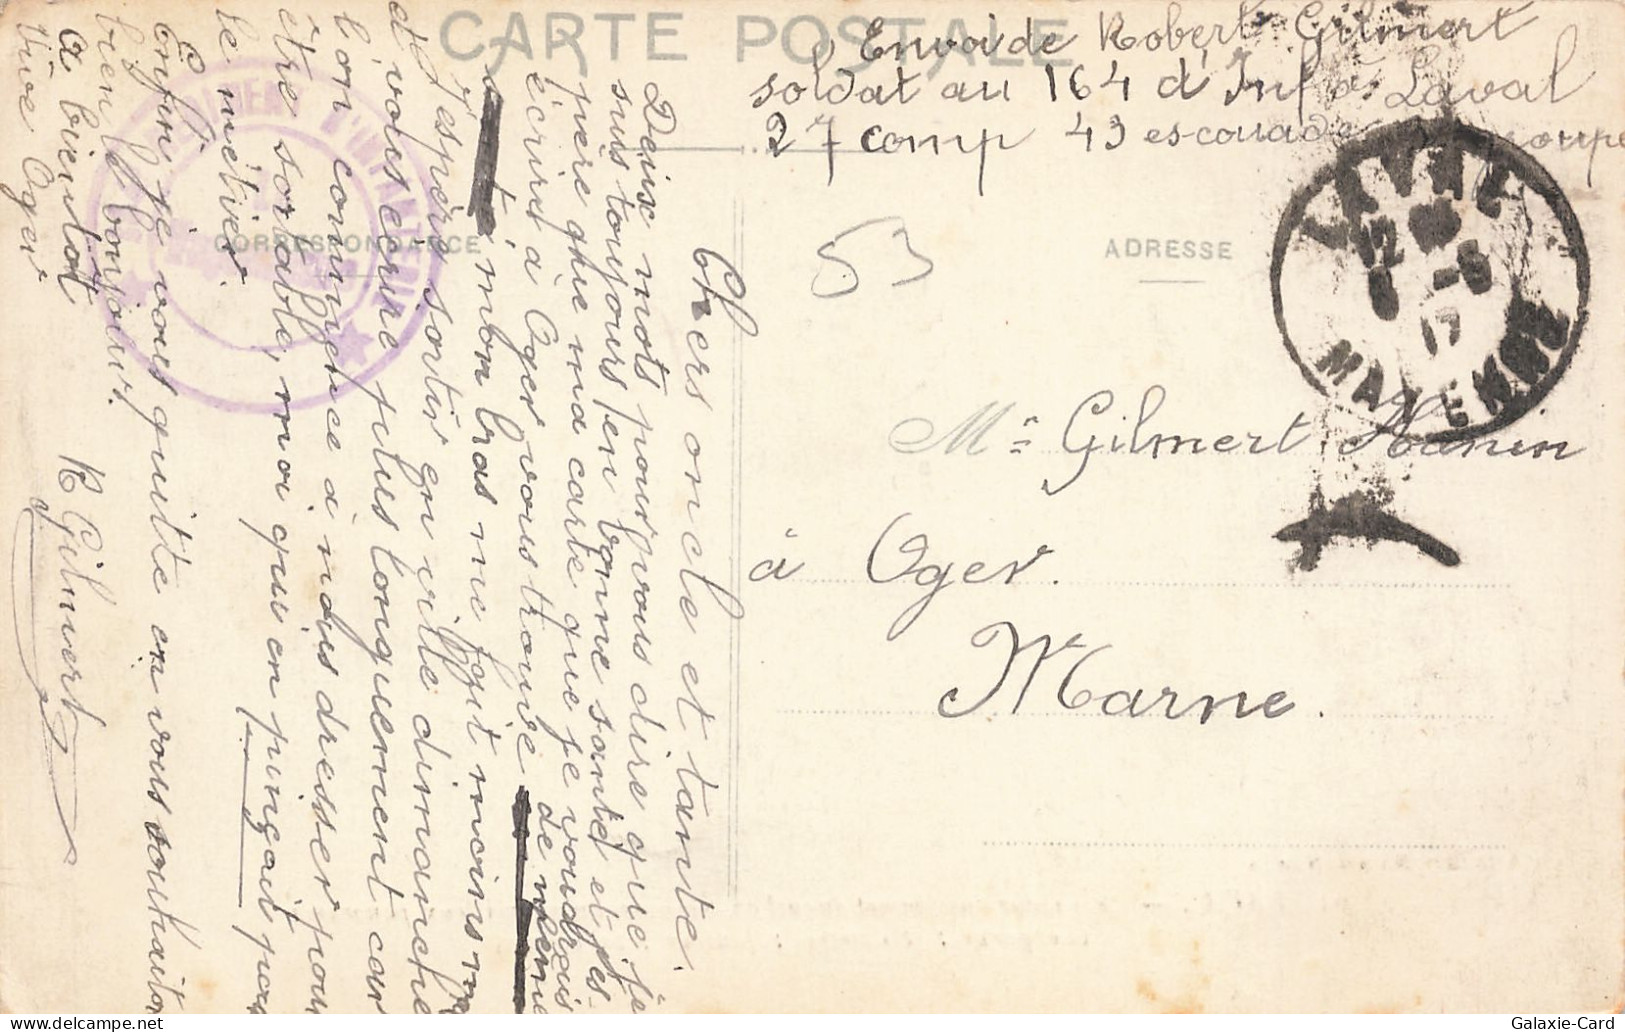 CARTE POSTALE
Envoi de Robert Gilmert
soldat au 164 d'Inf à Laval
27 comp 43 escouade
CORRESPONDANCE
ADRESSE
53
LAVAL
12
6 -6
17
MAYENNE
D'INFANTERIE
Mr Gilmert Hanin
à Oger.
Marne.
Chers oncle et tante.
Deux mots pour vous dire que je
suis toujours en bonne santé et j'es-
père que ma carte que je voudrais
écrire à Oger vous trouve de même
mon bras me fait moins mal
J'espère sortir en ville dimanche
d vous écrire plus longuement car
l'on commence à nous dresser pour
être sortable, moi qui en pinçait pour
le métier.
Enfin je vous quitte en vous souhaitant
bien le bonjour.
a bientot R Gilmert
Vive Oger
Galaxie-Card